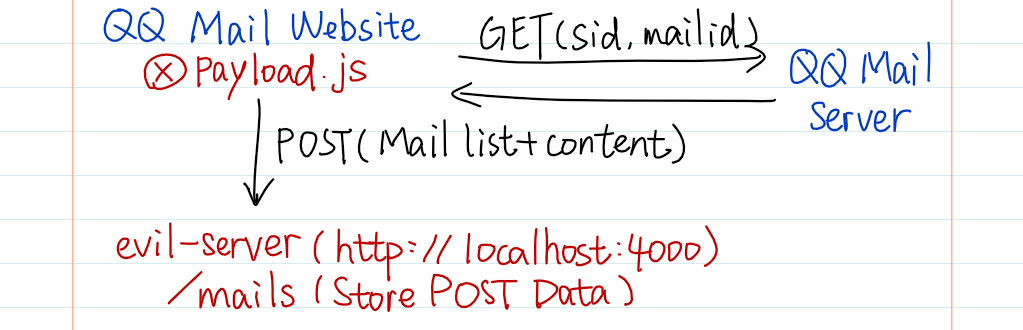 QQ Mail Website
GET(sid, mailid)
ⓧ Payload.js
QQ Mail
Server
POST(Mail list+content)
evil-server (http://localhost:4000)
/mails (Store POST Data)